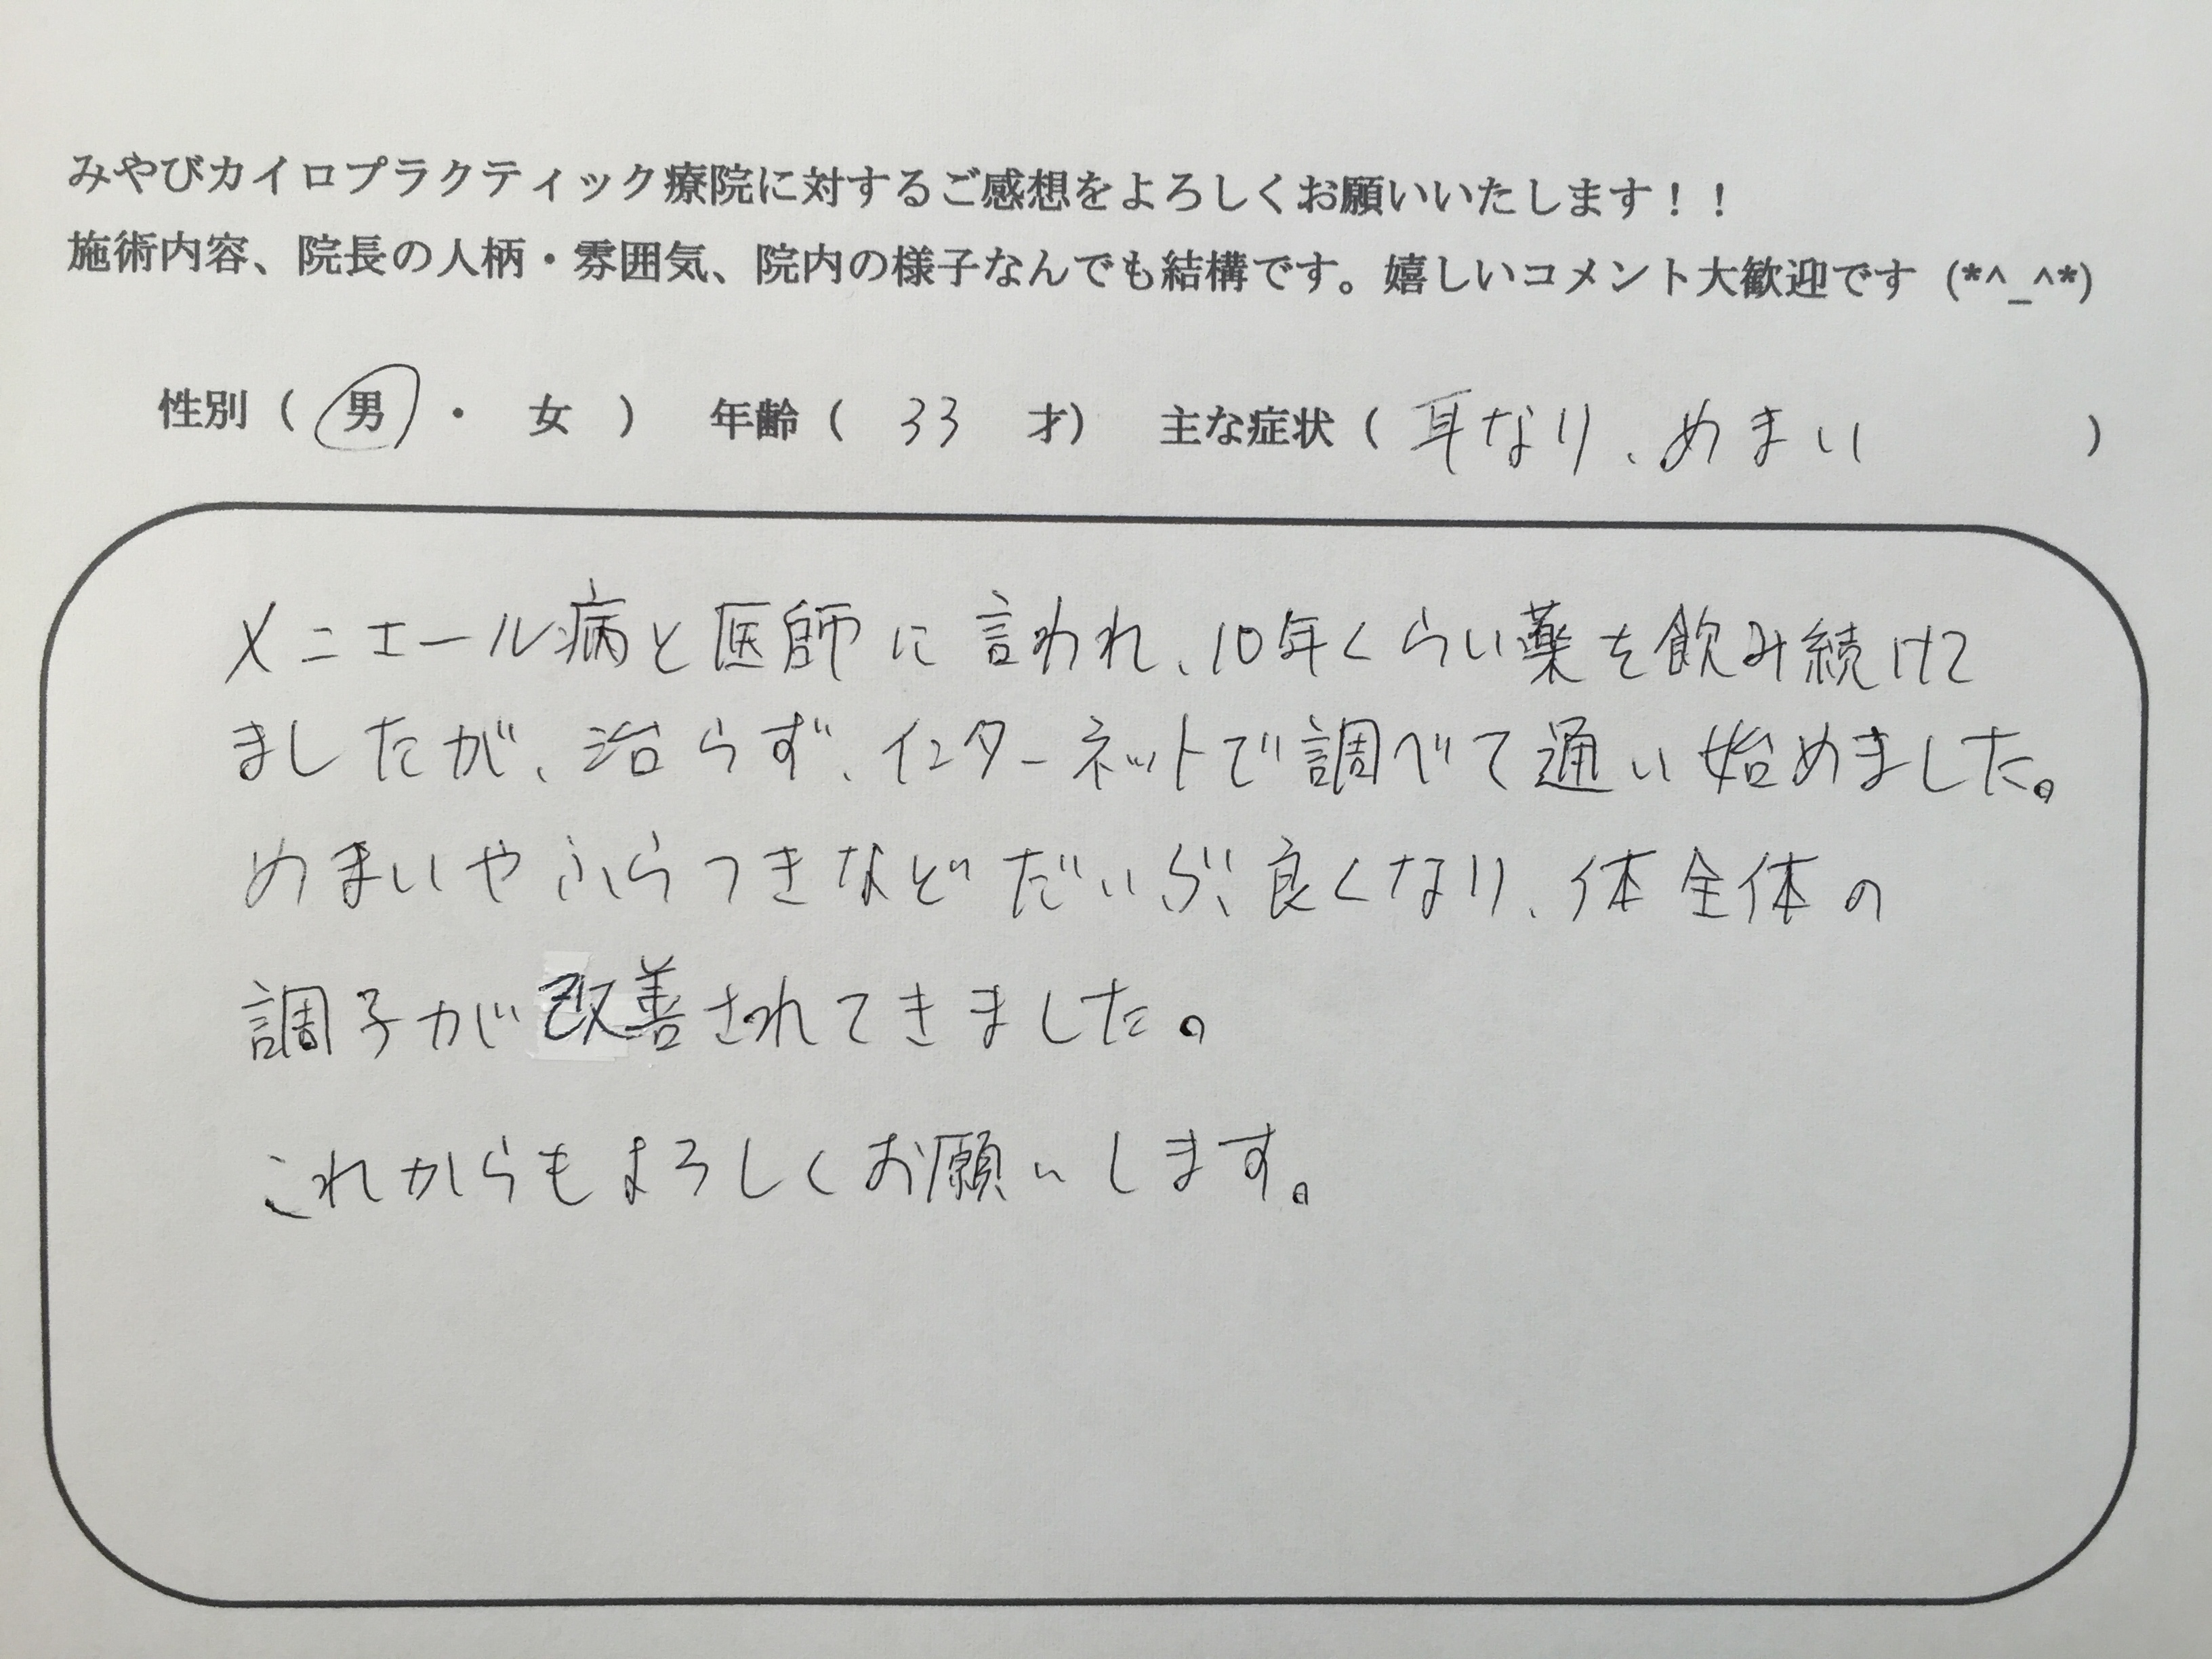 みやびカイロプラクティック療院に対するご感想をよろしくお願いいたします！！
施術内容、院長の人柄・雰囲気、院内の様子なんでも結構です。嬉しいコメント大歓迎です (*^_^*)
性別（ 男 ・ 女 ） 年齢（ 33 才） 主な症状（ 耳なり、めまい ）
メニエール病と医師に言われ、10年くらい薬を飲み続けて
ましたが、治らず、インターネットで調べて通い始めました。
めまいやふらつきなどだいぶ良くなり、体全体の
調子が改善されてきました。
これからもよろしくお願いします。